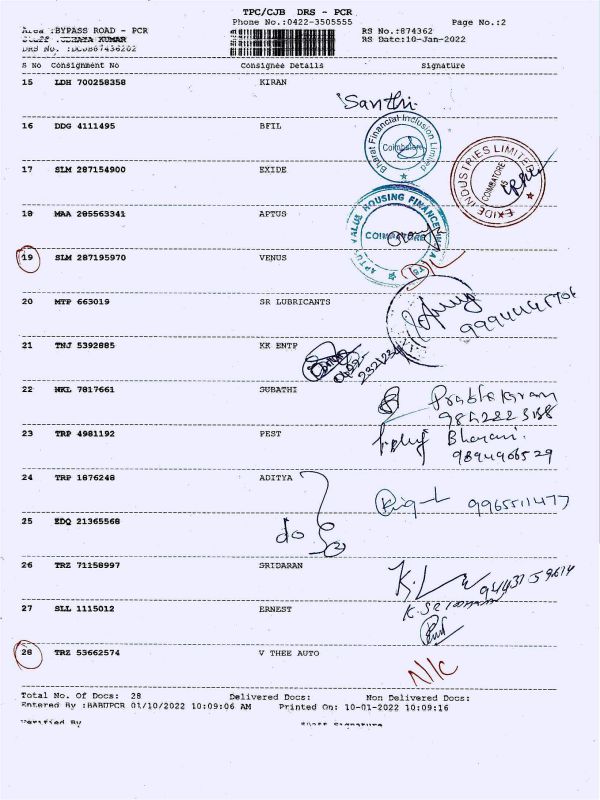 TPC/CJB DRS - PCR
Phone No.:0422-3505555 Page No.:2
Area :BYPASS ROAD - PCR RS No.:874362
Staff :UDHAYA KUMAR RS Date:10-Jan-2022
DRS No.
S No Consignment No Consignee Details Signature
15 LDH 700258358 KIRAN
Santhi
16 DDG 4111495 BFIL
Bharat Financial Inclusion Limited
Coimbatore
17 SLM 287154900 EXIDE
EXIDE INDUSTRIES LIMITED
COIMBATORE
18 MAA 285563341 APTUS
APTUS VALUE HOUSING FINANCE INDIA LTD
COIMBATORE
19 SLM 287195970 VENUS
20 MTP 663019 SR LUBRICANTS
21 TNJ 5392885 KK ENTP
22 NKL 7817661 SUBATHI
Prabhakaran
23 TRP 4981192 PEST
Bharani
9894906529
24 TRP 1876248 ADITYA
9965511477
25 EDQ 21365568
do
26 TRZ 71158997 SRIDARAN
27 SLL 1115012 ERNEST
28 TRZ 53662574 V THEE AUTO
N/C
Total No. Of Docs: 28 Delivered Docs: Non Delivered Docs:
Entered By :BABUPCR 01/10/2022 10:09:06 AM Printed On: 10-01-2022 10:09:16
Verified By Staff Signature